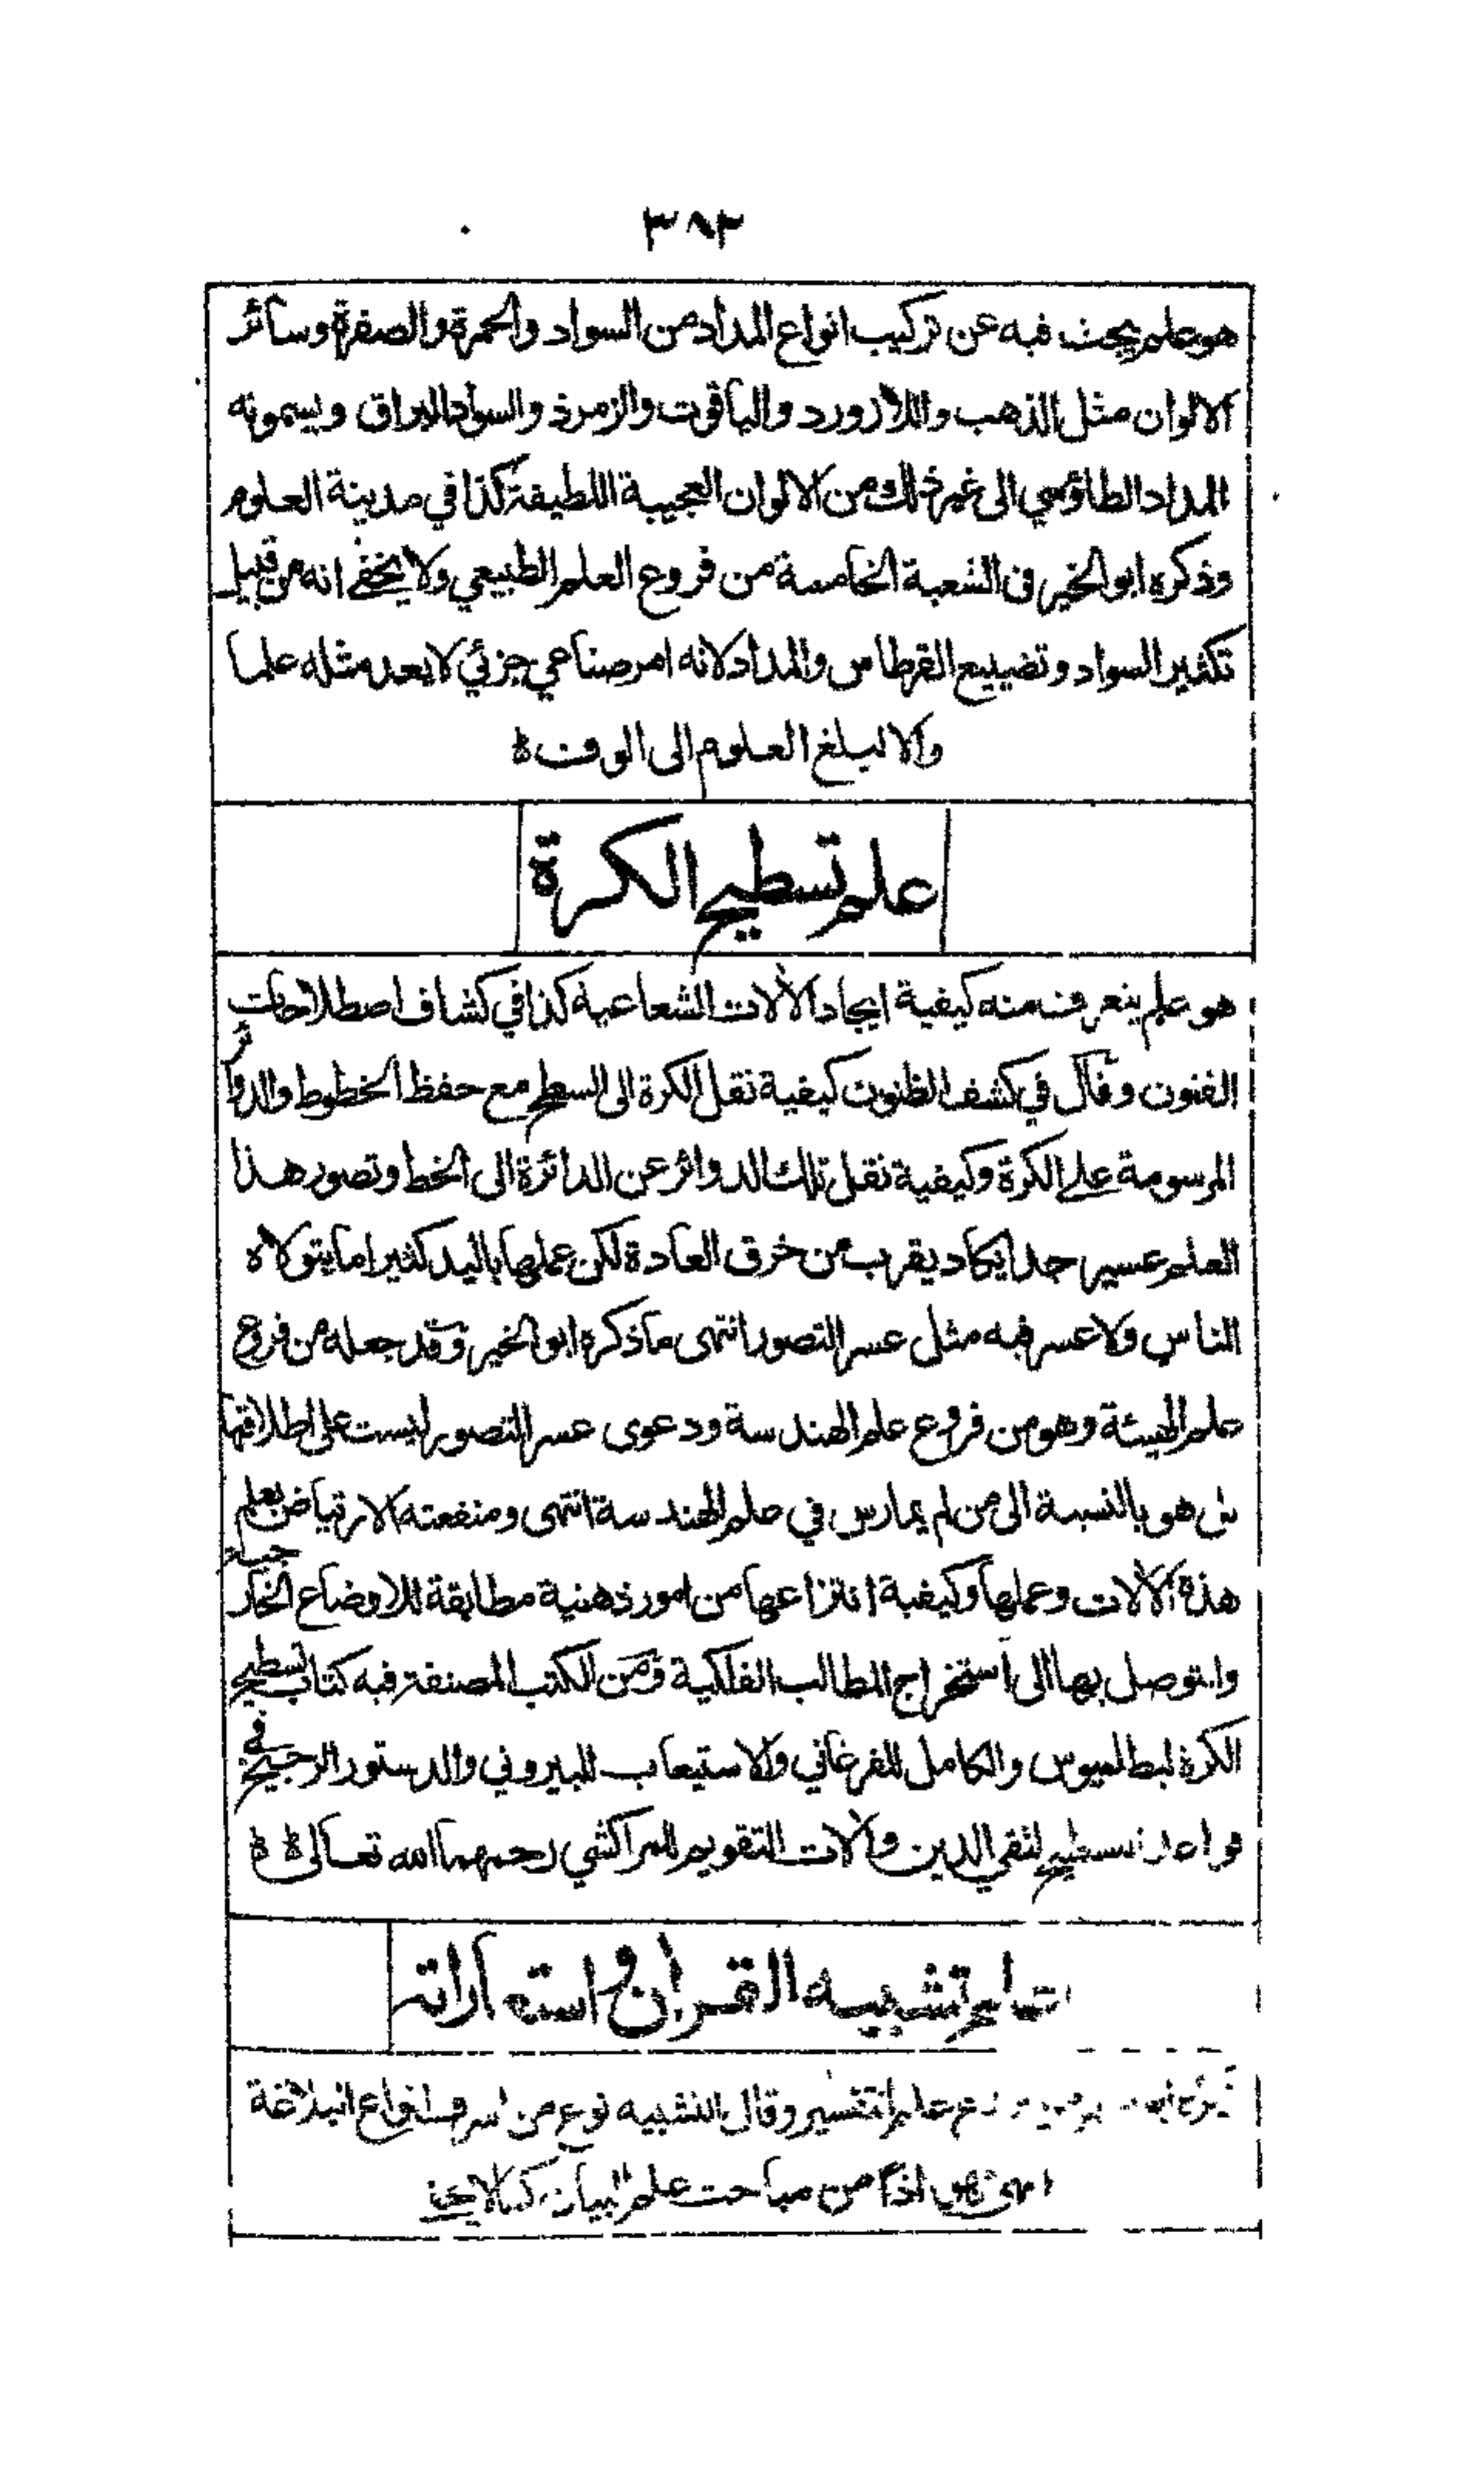 ٣٨٣
هو علم يبحث فيه عن تركيب انواع المداد من السواد والحمرة والصفرة وسائر
الالوان مثل الذهب واللازورد والياقوت والزمرذ والسواد البراق ويسمونه
المداد الطاؤسي الى غير ذلك من الالوان العجيبة اللطيفة كذا في مدينة العلوم
وذكره ابو الخير في الشعبة الخامسة من فروع العلم الطبيعي ولا يخفى انه من قبيل
تكثير السواد وتضييع القرطاس والمداد لانه امر صناعي جزئي لا يعد مثله علما
والا لبلغ العلوم الى الوف
علم تسطيح الكرة
هو علم يتعرف منه كيفية ايجاد الآلات الشعاعية كذا في كشاف اصطلاحات
الفنون وقال في كشف الظنون كيفية نقل الكرة الى السطح مع حفظ الخطوط والدوائر
المرسومة على الكرة وكيفية نقل تلك الدوائر عن الدائرة الى الخط وتصور هذا
العلم عسير جدا يكاد يقرب من خرق العادة لكن عملها باليد كثيرا ما يتولاه
الناس ولا عسر فيه مثل عسر التصور انتهى ما ذكره ابو الخير وقد جعله من فروع
علم الهيئة وهو من فروع علم الهندسة ودعوى عسر التصور ليست على اطلاقها
بل هو بالنسبة الى من لم يمارس في علم الهندسة انتهى ومنفعته الارتياض بعلم
هذه الآلات وعملها وكيفية انتزاعها من امور ذهنية مطابقة للاوضاع الخارجية
والتوصل بها الى استخراج المطالب الفلكية ومن الكتب المصنفة فيه كتاب تسطيح
الكرة لبطلميوس والكامل للفرغاني والاستيعاب للبيروني والدستور الرجيح في
قواعد التسطيح لتقي الدين وآلات التقويم للمراكشي رحمهما الله تعالى
علم تشبيه القران واستعاراته
علم التفسير وقال التشبيه نوع من اشرف انواع البلاغة
انتهى فهو اذا من مباحث علم البيان كما لا يخفى